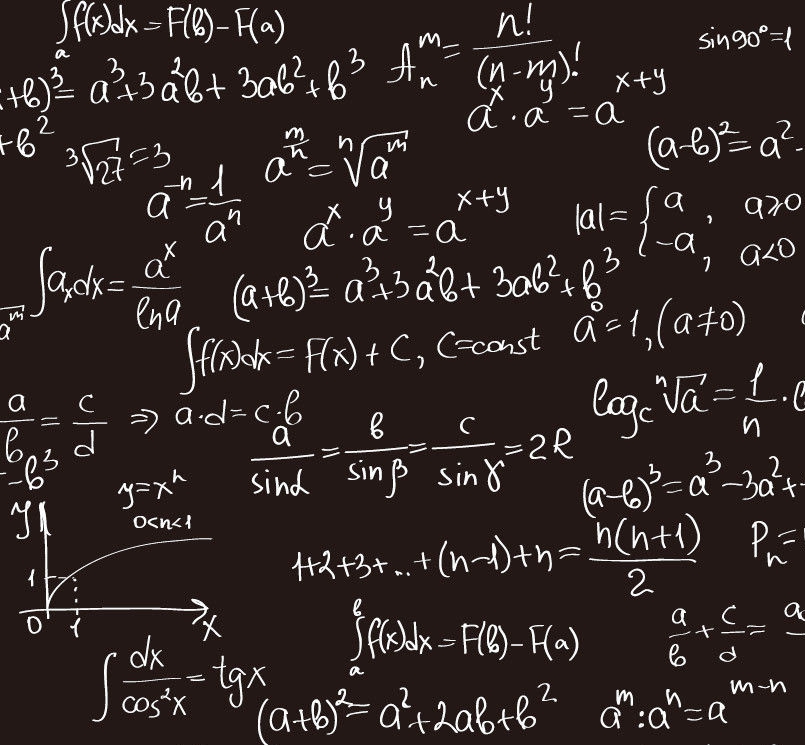 ∫ₐ f(x)dx = F(b) - F(a)
Aₙᵐ = n!/(n-m)!
sin90°=1
+b)³= a³+3a²b+ 3ab²+b³
aˣ · aʸ = aˣ⁺ʸ
+b²
³√27 = 3
a^(m/n) = ⁿ√aᵐ
(a-b)²= a² -
a⁻ⁿ= 1/aⁿ
aˣ · aʸ = aˣ⁺ʸ
|a| = { a, a≥0
-a, a<0
∫aₓdx = aˣ/lna
(a+b)³= a³+3a²b+ 3ab²+b³
aᵐ
∫f(x)dx = F(x) + C, C=const
a⁰=1, (a≠0)
a/b = c/d ⇒ a·d=c·b
log_c ⁿ√a = 1/n ·
a/sinα = b/sinβ = c/sinγ = 2R
-b³
(a-b)³= a³-3a²+
y=xⁿ
0<n<1
y
1
0 1 x
1+2+3+...+(n-1)+n= n(n+1)/2
Pₙ=
∫ₐᵇ f(x)dx = F(b) - F(a)
a/b + c/d =
∫ dx/cos²x = tgx
(a+b)²= a²+2ab+b²
aᵐ:aⁿ=aᵐ⁻ⁿ